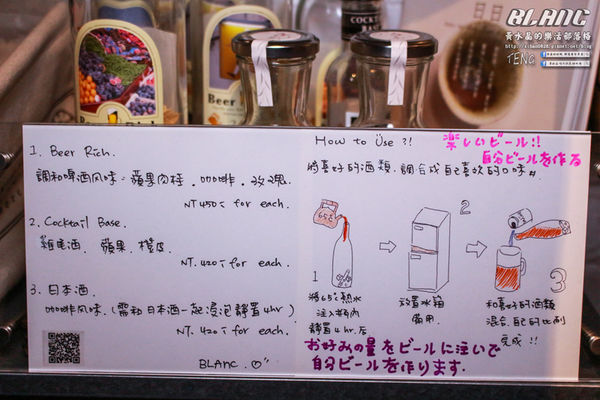 BLANC
黃水晶的樂活部落格
TENG
Beer Rich
Beer
COCKTAIL
1. Beer Rich.
調和啤酒風味:蘋果肉桂.咖啡.玫瑰
NT.450元 for each.
2. Cocktail Base.
雞尾酒. 蘋果. 橙皮
NT.420元 for each.
3. 日本酒.
咖啡風味.(需和日本酒一起浸泡靜置4hr)
NT.420元 for each.
BLANC.
How to Use ?!
楽しいビール!!
自分ビールを作る
將喜好的酒類,調合成自己喜歡的口味#
65℃
1
將65℃熱水
注入瓶內
靜置4hr.后
2
放置冰箱
備用.
3
和喜好的酒類
混合.自己的比例
完成!!
お好みの量をビールに注いで
自分ビールを作ります.